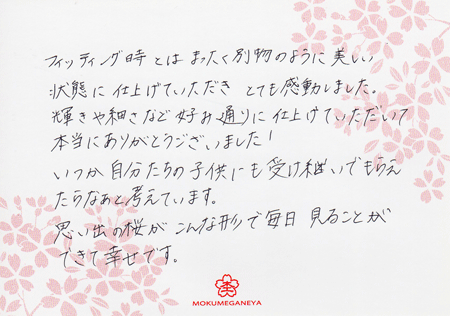 フィッティング時とはまったく別物のように美しい
状態に仕上げていただき とても感動しました。
輝きや細さなど好み通りに仕上げていただいて
本当にありがとうございました!
いつか自分たちの子供にも受け継いでもらえ
たらなぁと考えています。
思い出の桜がこんな形で毎日見ることが
できて幸せです。
MOKUMEGANEYA